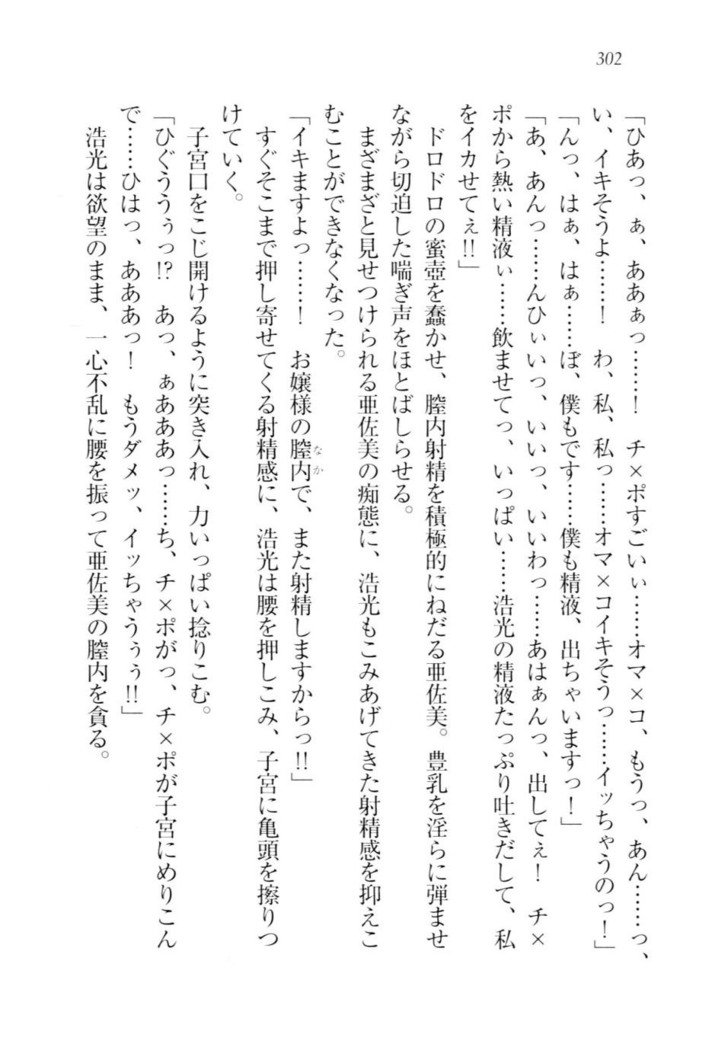 302
「ひあっ、ぁ、ああぁっ……！　チ×ポすごいぃ……オマ×コ、もうっ、あん……っ、
い、イキそうよ……！　わ、私、私っ……オマ×コイキそうっ……イッちゃうのっ！」
「んっ、はぁ、はぁ……ぼ、僕もです……僕も精液、出ちゃいますっ！」
「あ、あんっ……んひぃいっ、いいっ、いいわっ……あはぁんっ、出してぇ！　チ×
ポから熱い精液ぃ……飲ませてっ、いっぱい……浩光の精液たっぷり吐きだして、私
をイカせてぇ!!」
ドロドロの蜜壺を蠢かせ、膣内射精を積極的にねだる亜佐美。豊乳を淫らに弾ませ
ながら切迫した喘ぎ声をほとばしらせる。
まざまざと見せつけられる亜佐美の痴態に、浩光もこみあげてきた射精感を抑えこ
むことができなくなった。
「イキますよっ……！　お嬢様の膣内なかで、また射精しますからっ!!」
すぐそこまで押し寄せてくる射精感に、浩光は腰を押しこみ、子宮に亀頭を擦りつ
けていく。
子宮口をこじ開けるように突き入れ、力いっぱい捻りこむ。
「ひぐううぅっ!?　あっ、ぁあああっ……ち、チ×ポがっ、チ×ポが子宮にめりこん
で……ひはっ、あああっ！　もうダメッ、イッちゃうぅぅ!!」
浩光は欲望のまま、一心不乱に腰を振って亜佐美の膣内を貪る。